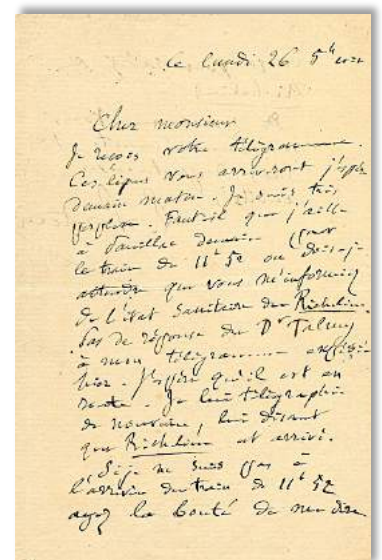 Ce lundi 26
Cher monsieur
Je reçois votre télégramme.
Ces lignes vous arriveront j'espère
demain matin. Je suis très
perplexe. Faut-il que j'aille
à demain par
le train de 11h 52 ou dois-je
attendre que vous m'informiez
de l'état sanitaire du Richelieu
Pas de réponse du Dr Talmy
à mon télégramme
hier. J'espère qu'il est en
route. Je lui télégraphie
de nouveau, lui disant
que Richelieu est arrivé.
Si je ne suis pas à
l'arrivée du train de 11h 52
ayez la bonté de me dire